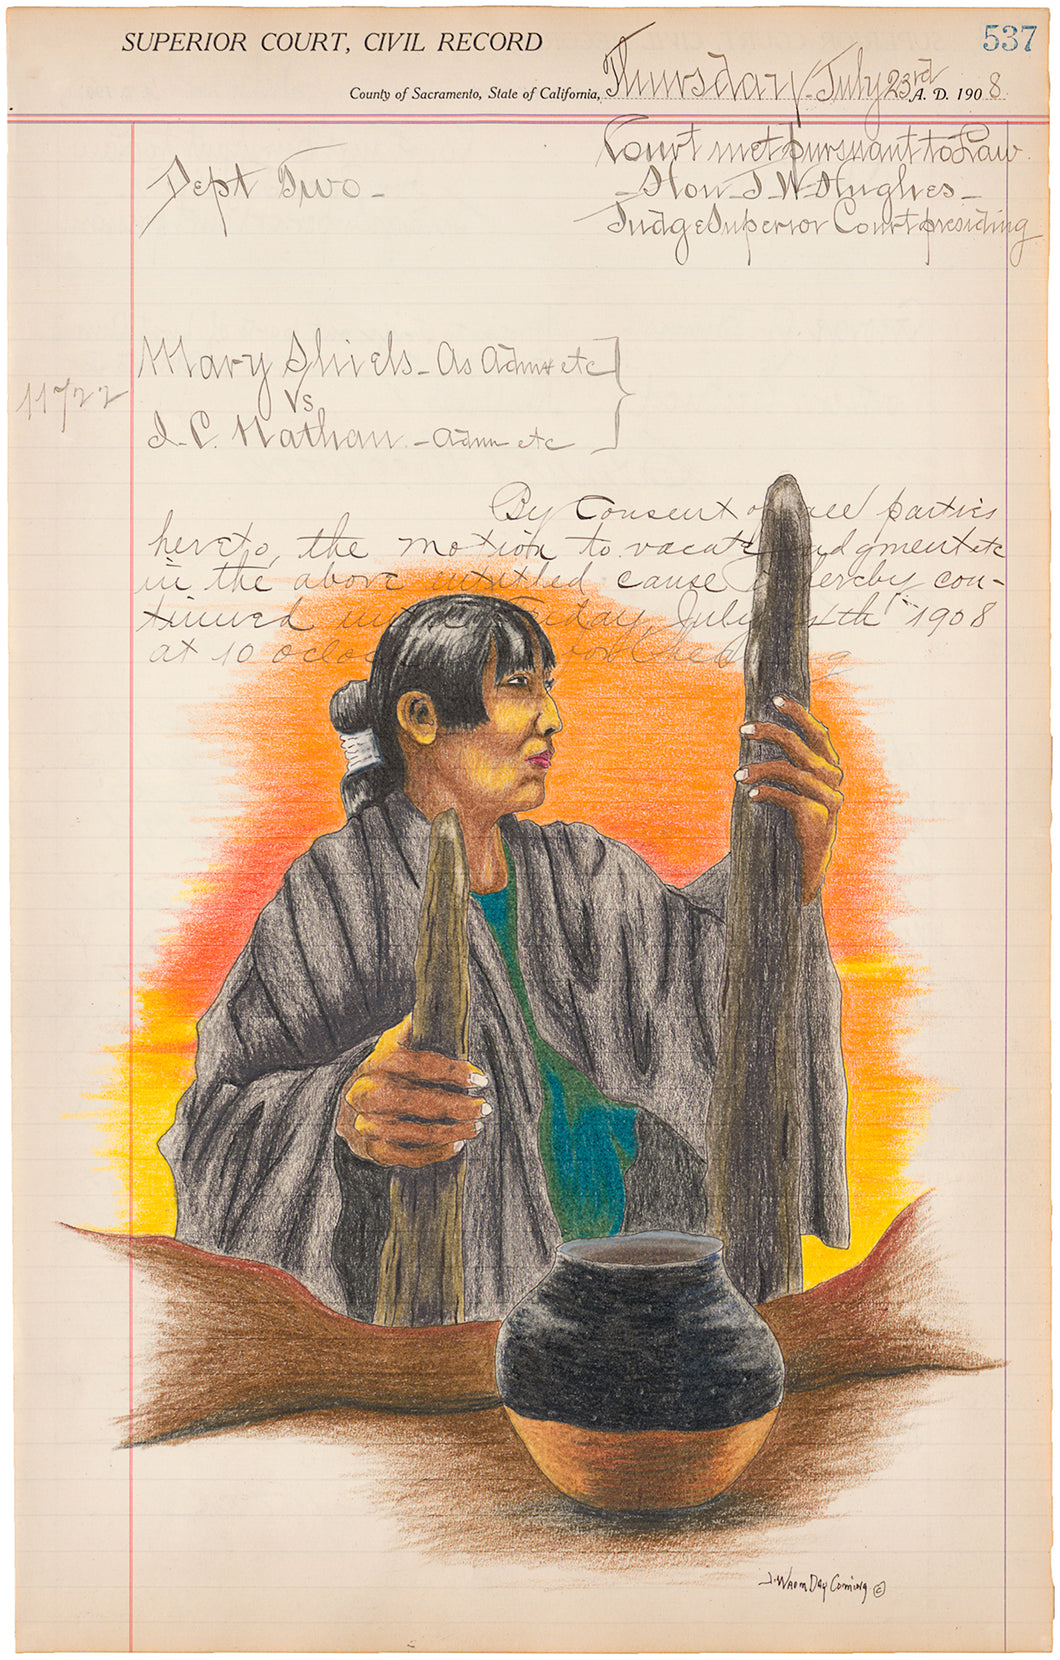 SUPERIOR COURT, CIVIL RECORD
537
County of Sacramento, State of California, Thursday July 23rd A. D. 1908.
Dept Two -
Court met pursuant to Law
- Hon J W Hughes -
Judge Superior Court presiding
Mary Shiels - As Admx etc
11722
Vs
J. C. Nathan - Admr etc
By Consent of all parties
hereto, the motion to vacate judgment etc
in the above entitled cause is hereby con-
tinued until Friday July 24th 1908
at 10 oclock
J. Warm Day Coming ©